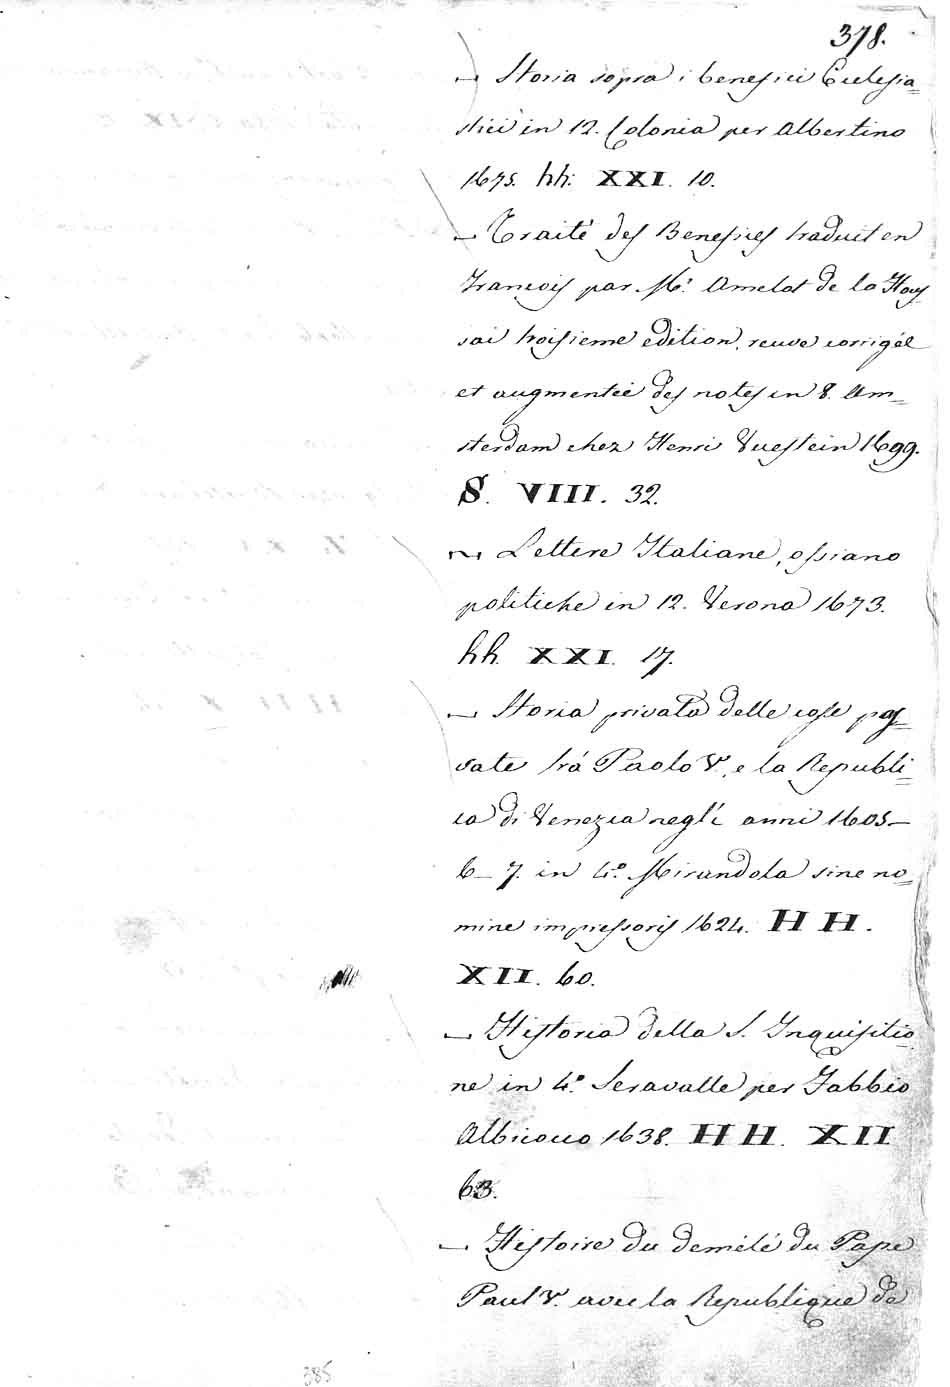 378.
— Storia sopra i benefici Ecclesia=
stici in 12. Colonia per Albertino
1675. hh. XXI. 10.
— Traité des Benefices traduit en
Francois par Mr. Amelot de la Hous
sai troisieme edition, reuve corrigée
et augmentée des notes in 8. Am=
sterdam chez Henri Vuestein 1699.
S. VIII. 32.
— Lettere Italiane, ossiano
politiche in 12. Verona 1673.
hh. XXI. 17.
— Storia privata delle cose pas=
sate trá Paolo V. e la Republi=
ca di Venezia negl'i anni 1605—
6— 7. in 4.o Mirandola sine no=
mine impressoris 1624. HH.
XII. 60.
— Historia della S. Inquisitio=
ne in 4.o Seravalle per Fabbio
Albicocco 1638. HH. XII
63.
— Histoire du demélé du Pape
Paul V. avec la Republique de
385